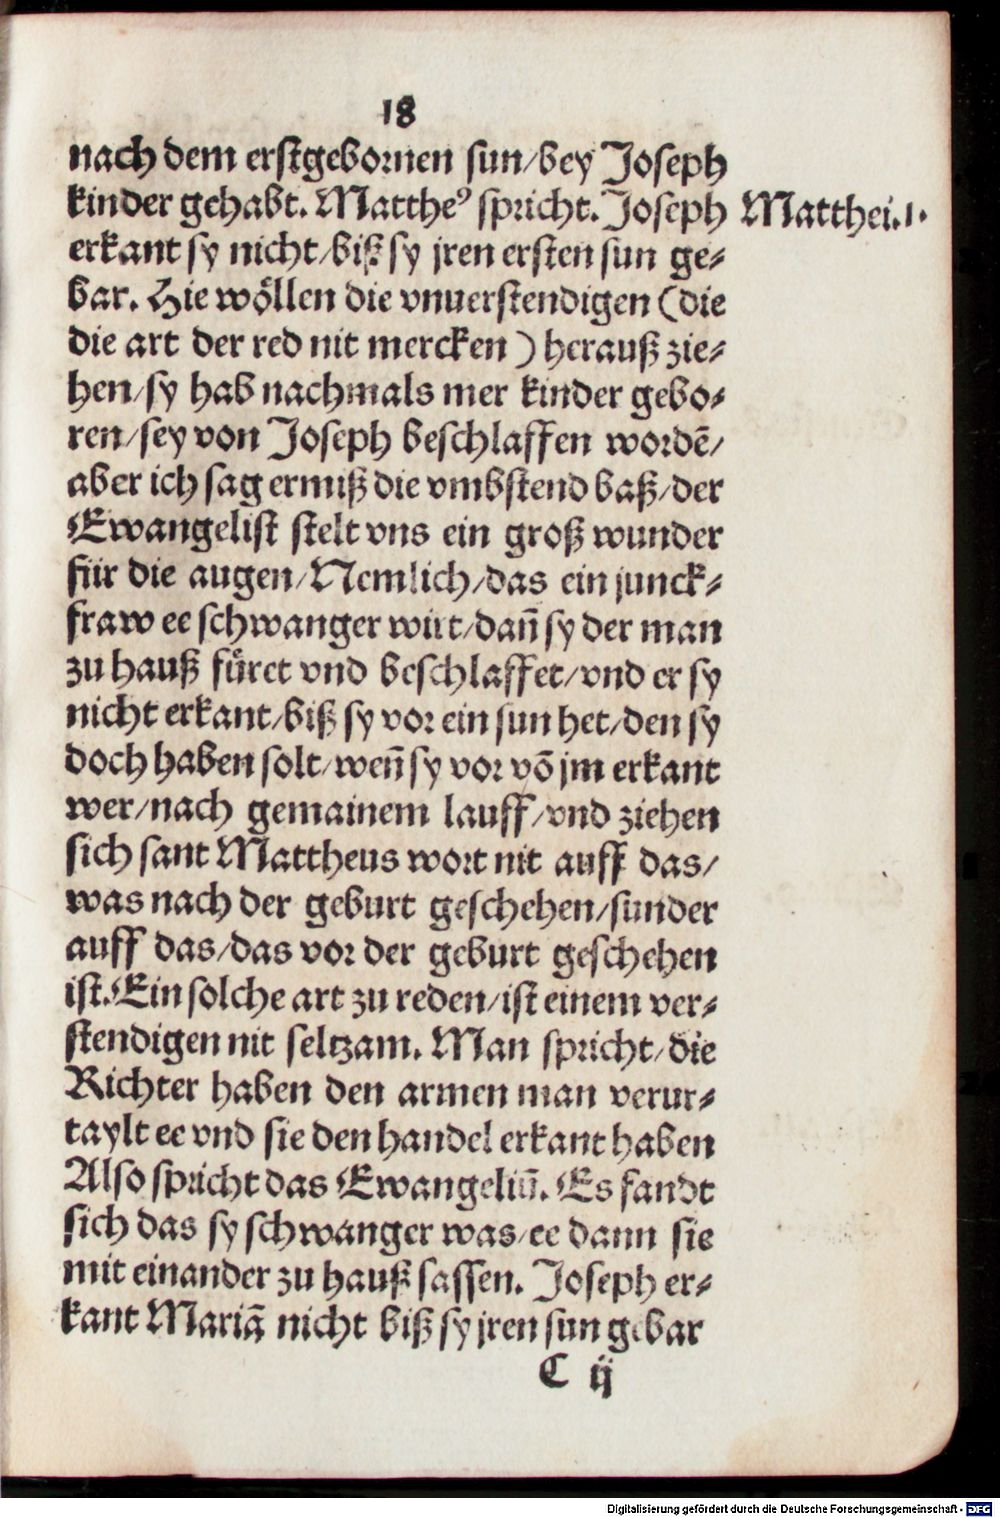 18
nach dem erstgebornen sun/bey Joseph
kinder gehabt. Mattheꝰ spricht. Joseph Matthei.1.
erkant sy nicht/biß sy jren ersten sun ge⸗
bar. Hie wöllen die vnuerstendigen (die
die art der red nit mercken) herauß zie⸗
hen/sy hab nachmals mer kinder gebo⸗
ren/sey von Joseph beschlaffen wordē/
aber ich sag ermiß die vmbstend baß/der
Ewangelist stelt vns ein groß wunder
für die augen/Nemlich/das ein junck⸗
fraw ee schwanger wirt/dañ sy der man
zu hauß füret vnd beschlaffet/vnd er sy
nicht erkant/biß sy vor ein sun het/den sy
doch haben solt/weñ sy vor võ jm erkant
wer/nach gemainem lauff/vnd ziehen
sich sant Mattheus wort nit auff das/
was nach der geburt geschehen/sunder
auff das/das vor der geburt geschehen
ist.Ein solche art zu reden/ist einem ver⸗
stendigen nit seltzam. Man spricht/die
Richter haben den armen man verur⸗
taylt ee vnd sie den handel erkant haben
Also spricht das Ewangeliū. Es fandt
sich das sy schwanger was/ee dann sie
mit einander zu hauß sassen. Joseph er⸗
kant Mariā nicht biß sy jren sun gebar
C ij
Digitalisierung gefördert durch die Deutsche Forschungsgemeinschaft - DFG